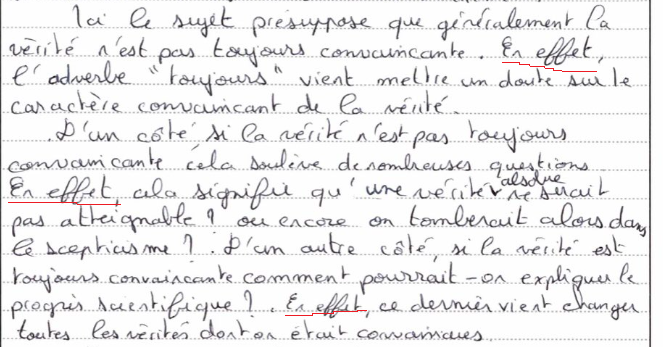 Ici le sujet présuppose que généralement la
vérité n'est pas toujours convaincante. En effet,
l'adverbe "toujours" vient mettre un doute sur le
caractère convaincant de la vérité.
D'un côté, si la vérité n'est pas toujours
convaincante cela soulève de nombreuses questions.
En effet, cela signifie qu'une vérité absolue ne serait
pas atteignable ? ou encore on tomberait alors dans
le scepticisme ? D'un autre côté, si la vérité est
toujours convaincante comment pourrait-on expliquer le
progrès scientifique ? En effet, ce dernier vient changer
toutes les vérités dont on était convaincues.